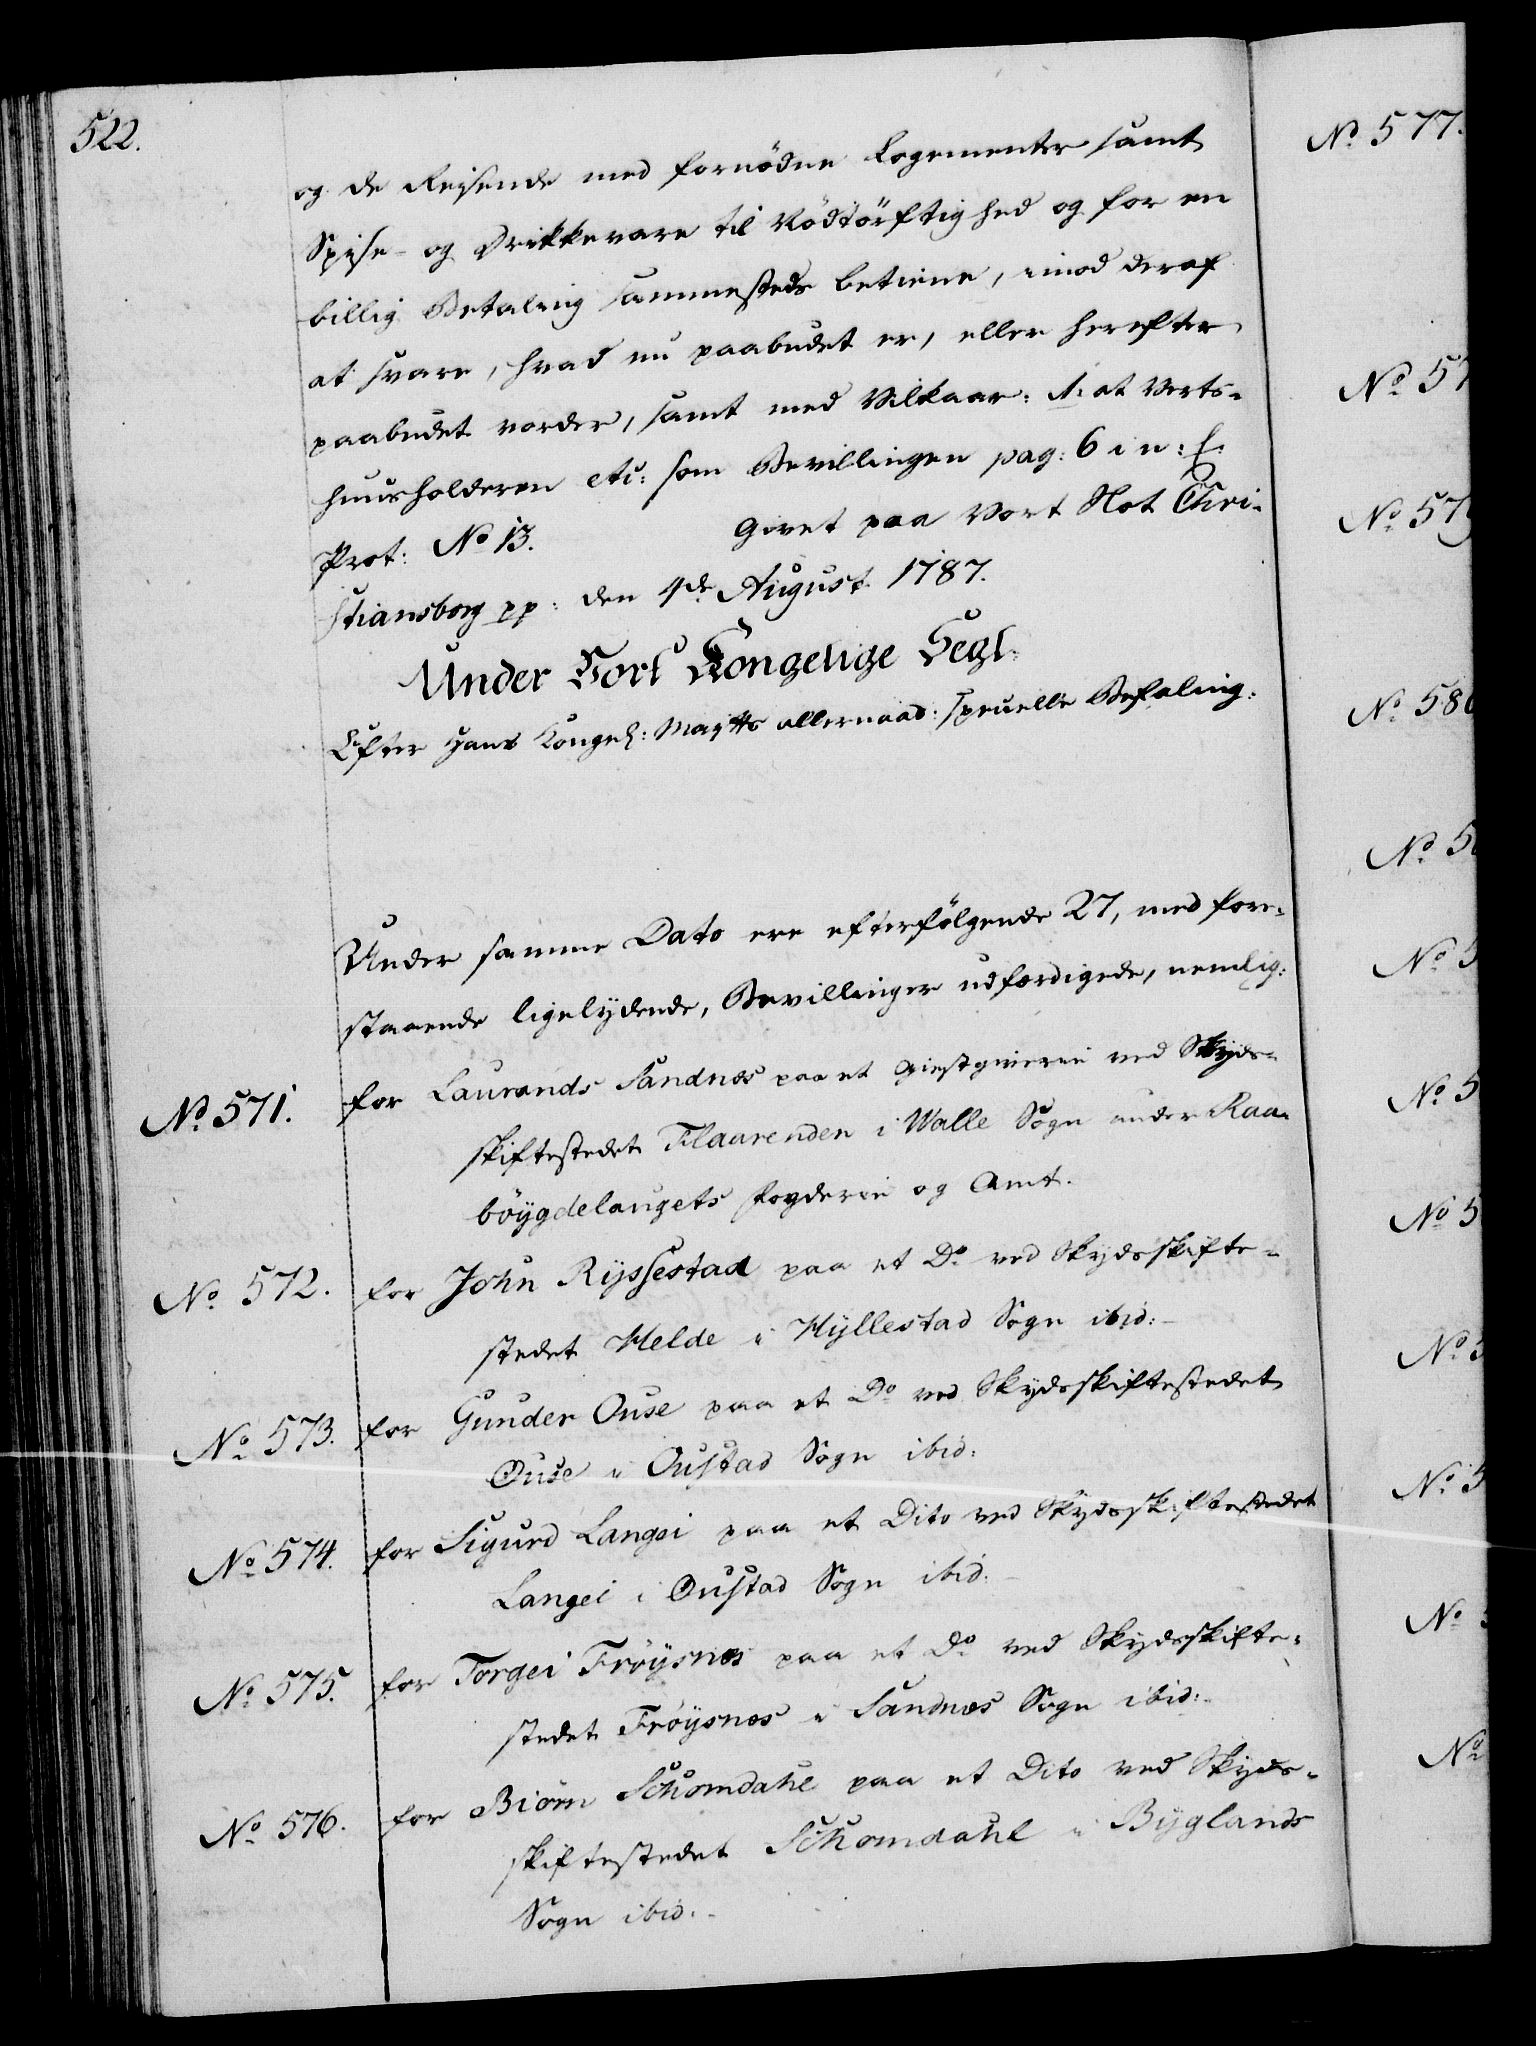 522.
og de Reisende med fornødne Logementer samt
Spise- og Drikkevare til Nødtørftighed og for en
billig Betaling sammesteds betiene, imod deraf
at svare, hvad nu paabudet er, eller herefter
paabudet vorder, samt med Vilkaar: 1. at Verts-
huusholderen etc: som Bevillingen pag: 6 i n: f:
Prot: No 13. Givet paa Vort Slot Chri-
stiansborg pp: den 4de August 1787.
Under Vort Kongelige Segl.
Efter Hans Kongel: Maytts allernaad: specielle Befaling.
Under samme Dato ere efterfølgende 27, med fore-
staaende ligelydende, Bevillinger udfærdigede, nemlig:
No 571. for Laurands Sandnæs paa et Giestgiverie ved Skyds-
skiftestedet Flaarenden i Walle Sogn under Raa-
böygdelaugets Fogderie og Amt.
No 572. for John Ryssestad paa et Do ved Skydsskifte-
stedet Helde i Hyllestad Sogn ibid:
No 573. for Gunder Ouse paa et Do ved Skydsskiftestedet
Ouse i Oustad Sogn ibid:
No 574. for Sigurd Langei paa et Dito ved Skydsskiftestedet
Langei i Oustad Sogn ibid.
No 575. for Torgei Fröysnæs paa et Do ved Skydsskifte-
stedet Fröysnæs i Sandnæs Sogn ibid:
No 576. for Biörn Schomdahl paa et Dito ved Skyds-
skiftestedet Schomdahl i Byglands
Sogn ibid:
No 577.